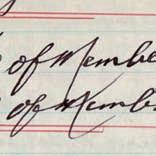 of Membe
of Membe